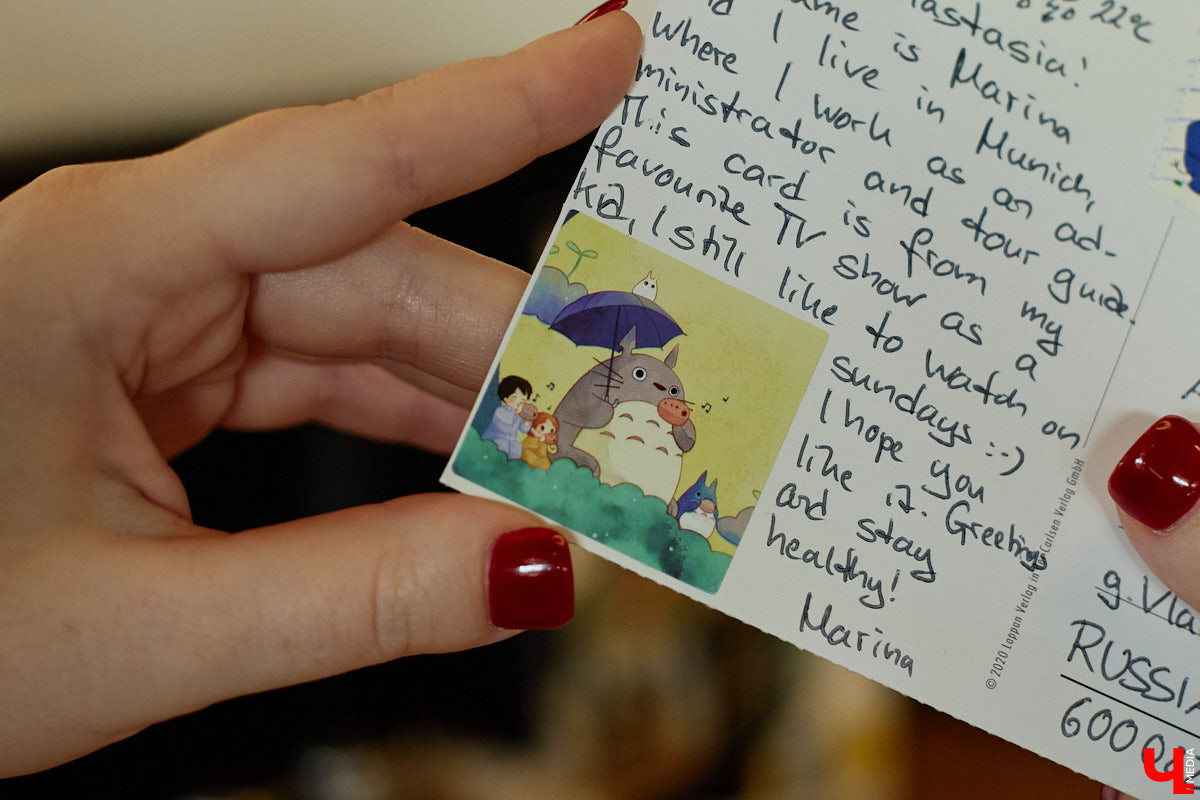 22°C
Anastasia!
name is Marina
I live in Munich,
Where I work as an ad-
ministrator and tour guide.
This card is from my
favourite TV show as a
kid, I still like to watch on
sundays :-)
I hope you
like it. Greetings
and stay
healthy!
Marina
© 2020 Lappan Verlag in Carlsen Verlag GmbH
g. Vla
RUSSIA
6000
Ч MEDIA